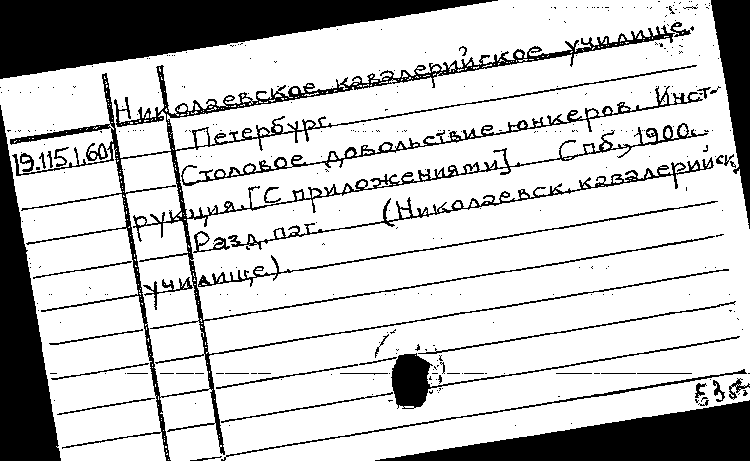 Николаевское кавалерийское училище.
Петербург.
19.115.1.601
Столовое довольствие юнкеров. Инст-
рукция. [С приложениями]. Спб., 1900.
Разд. паг. (Николаевск. кавалерийск.
училище).